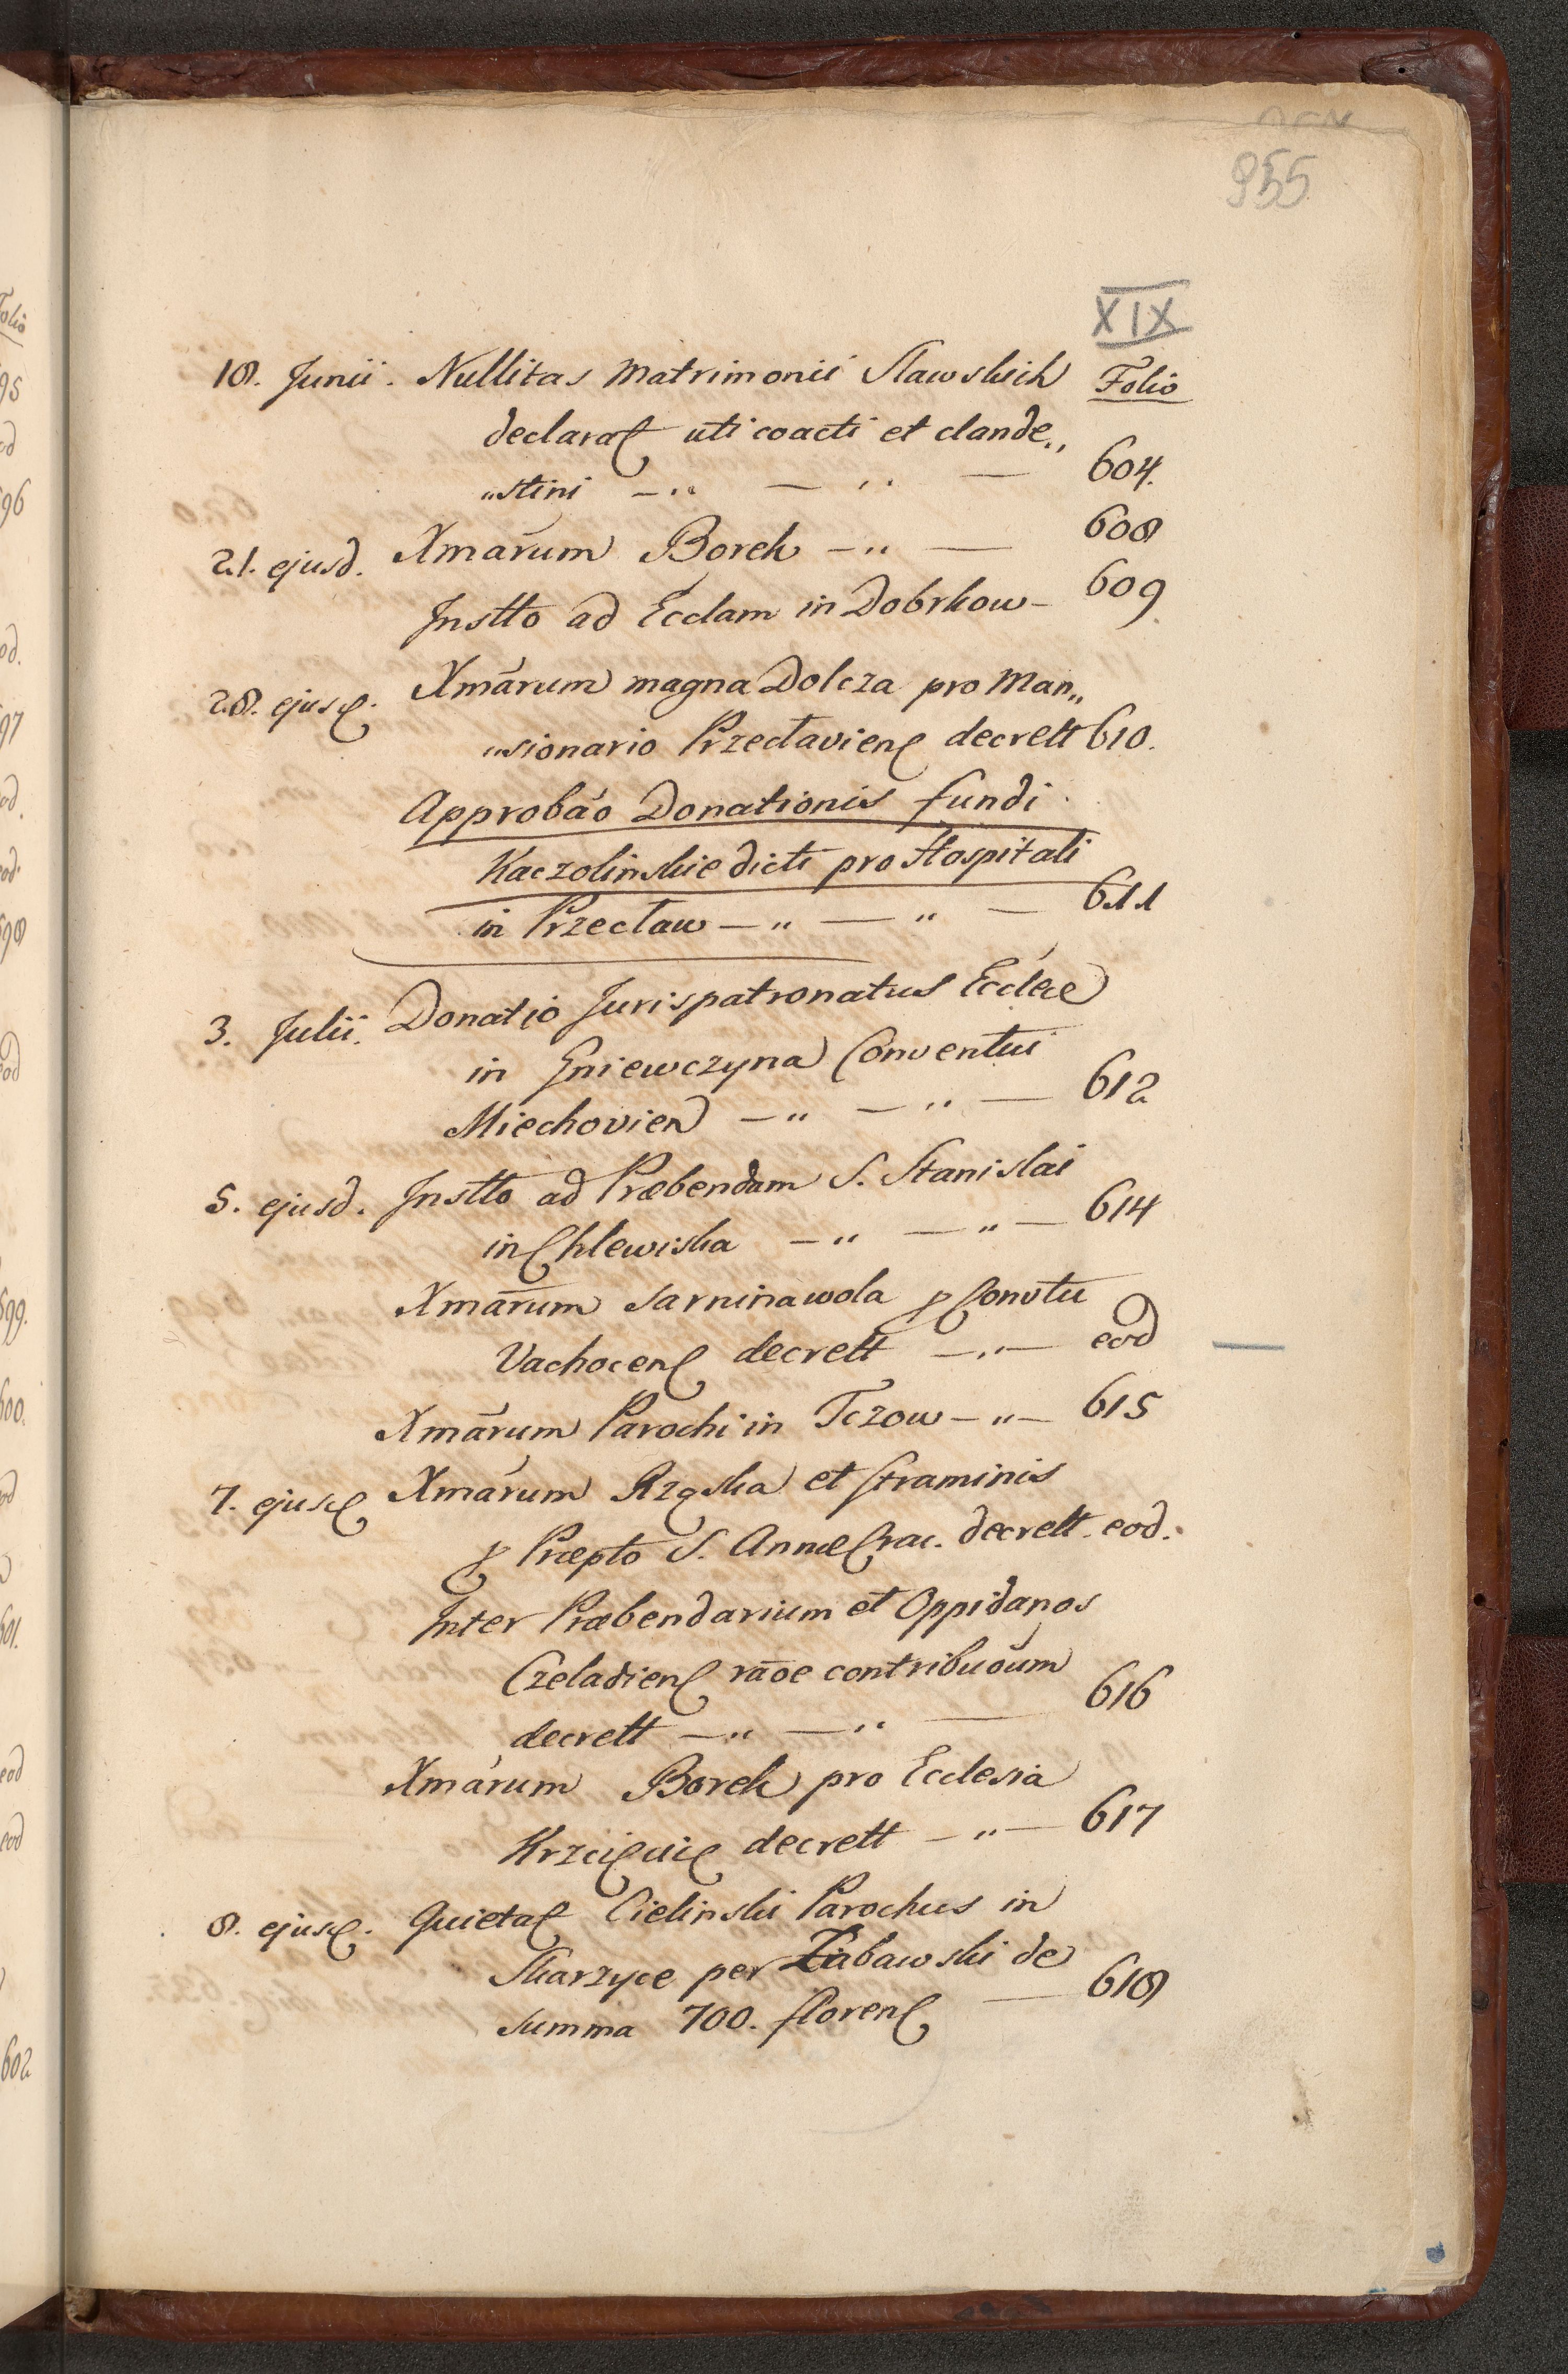 955
XIX
18. Junii. Nullitas Matrimonii Slawskich Folio
declarat uti coacti et clande„
„stini —„ — „ — 604.
21. ejusd. Xmãrum Borek —„ — 608
Instto ad Ecclam in Dobrkow — 609.
28. ejusd. Xmãrum magna Dolcza pro Man„
„sionario Przecłavien decrett 610.
Approbáo Donationis fundi
Kaczolinskie dicti pro Hospitali
in Przecław —„ — „ — 611
3. Julii. Donatio Jurispatronatus Ecclæe
in Gniewczyna Conventui
Miechovien —„ — „ — 612
5. ejusd. Instto ad Præbendam S. Stanislai
in Chlewiska —„ — „ — 614
Xmãrum Sarninawola p Convtu
Vachocen decrett —„— eod
Xmãrum Parochi in Tczow —„— 615
7. ejusd Xmãrum Rząska et Straminis
p Præpto S. Annæ Crac. decrett. eod.
Inter Præbendarium et Oppidanos
Czeladien rãoe contribuõum
decrett —„ —„ — 616
Xmãrum Borek pro Ecclesia
decrett —„— 617
8. ejusd. Quietat Cielinski Parochus in
Skarzyce per Żabawski de
summa 700. floren — 618